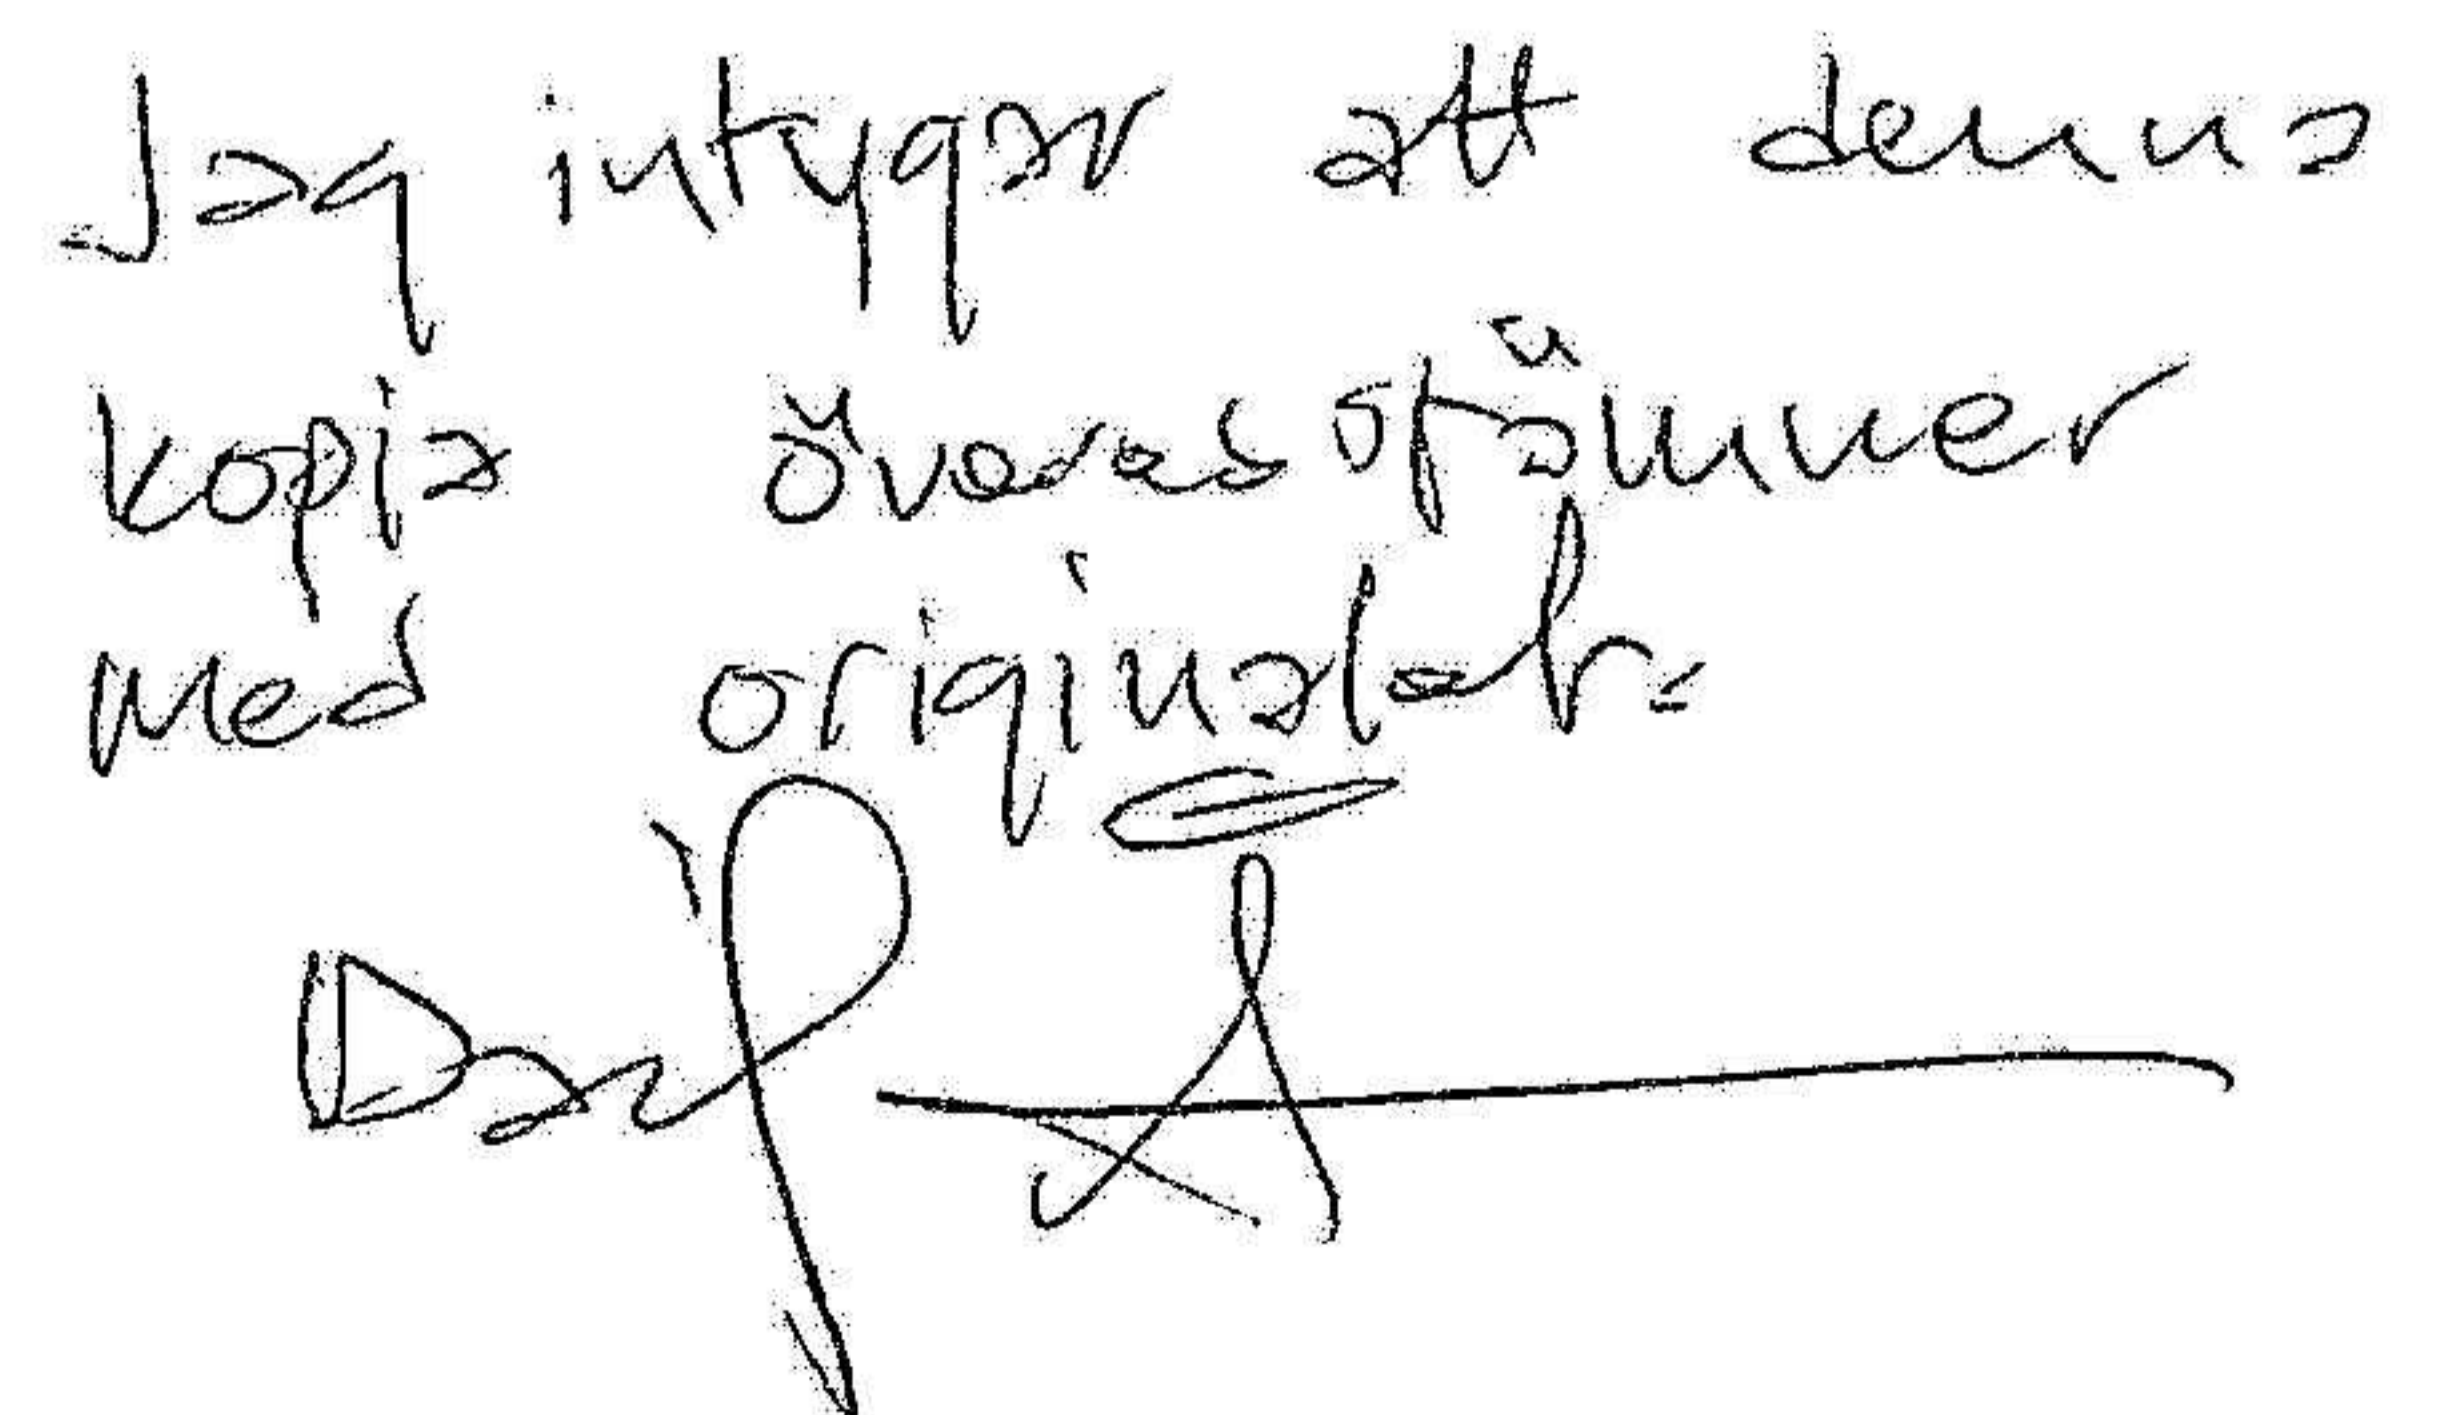 Jag intygar att denna
kopia överens stämmer
med originalet.